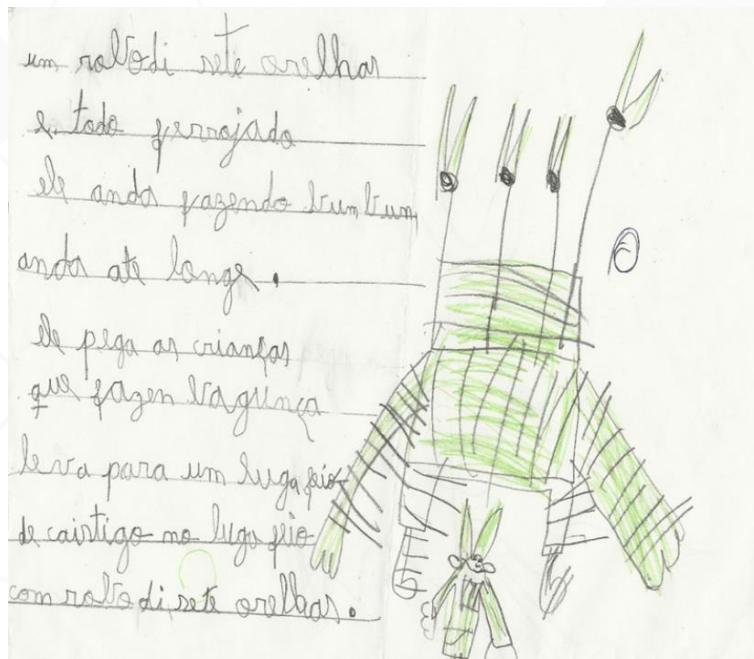 um robodi sete orelhas
e. todo ferrojado
ele anda fazendo bumbum
anda ate longe.
ele pega as crianças
que fazen bagunça
leva para um luga feio
de caistigo no luga feio
com robo di sete orelhas.